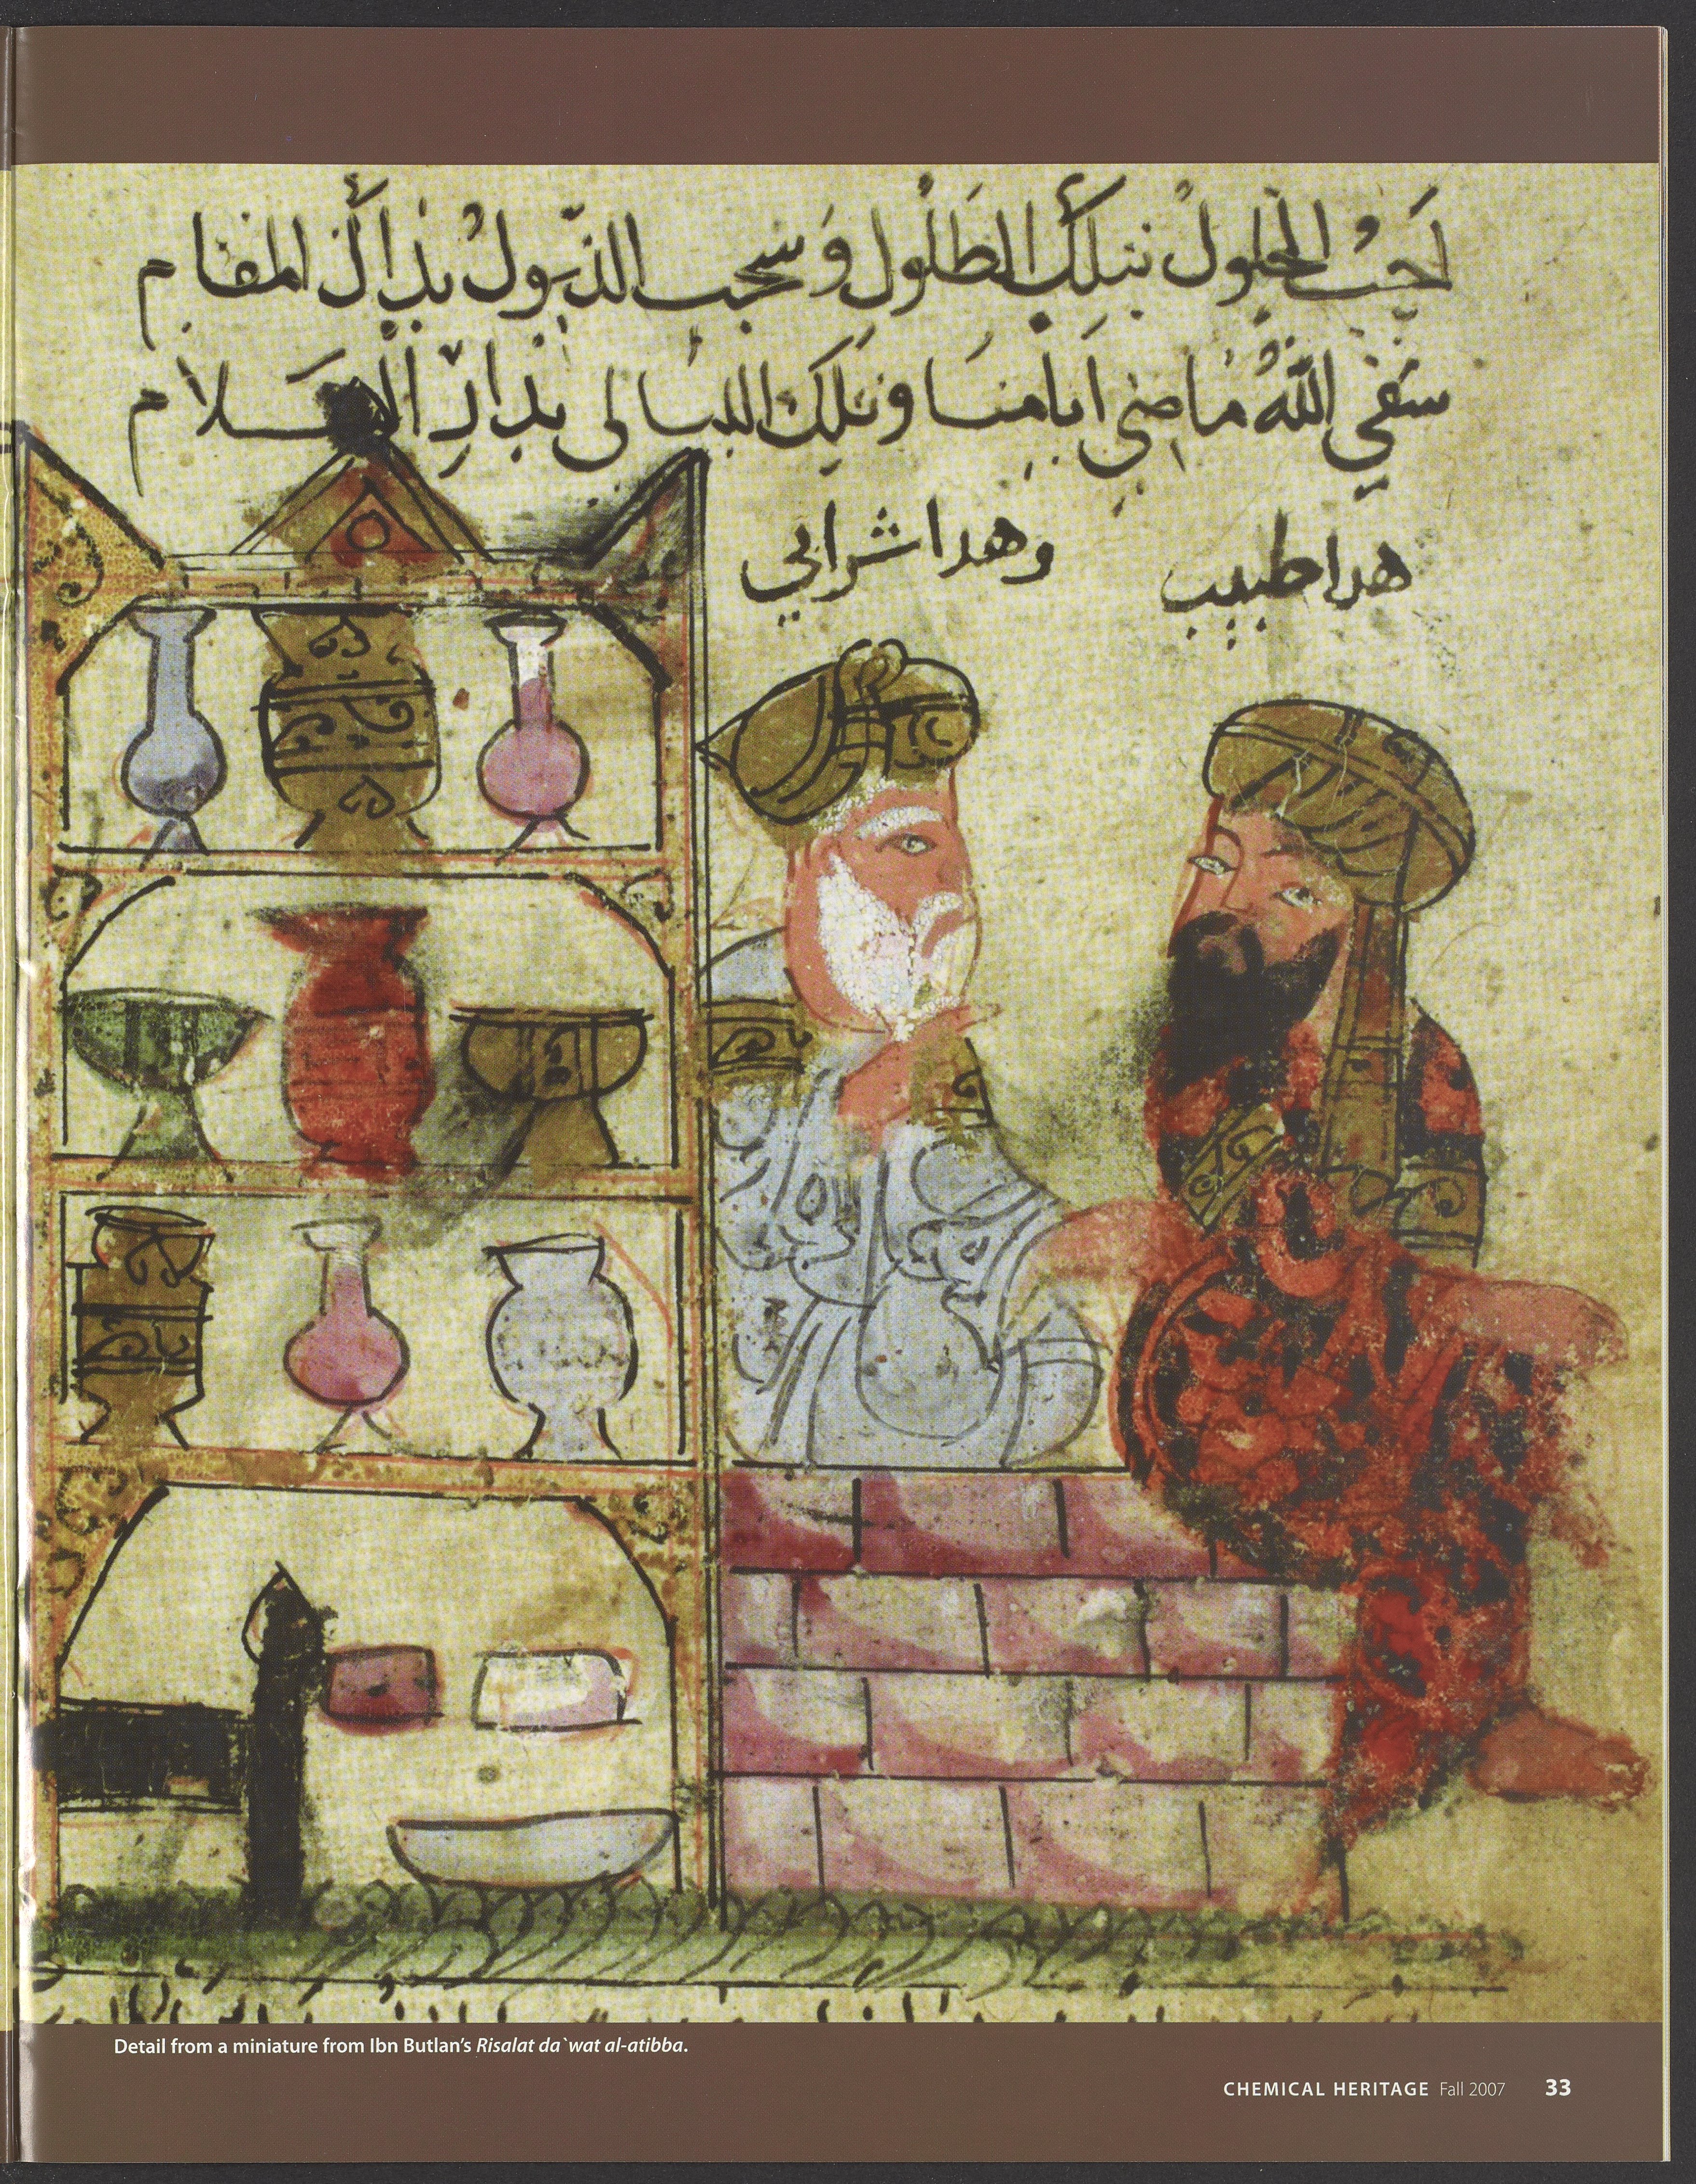 احب الحلول بتلك الطلول وسحب الذيول بذاك المقام
سقى الله ماضى ايامنا وتلك الليالى بدار السلام
وهدا شرابي
هدا طبيب
Detail from a miniature from Ibn Butlan's Risalat da`wat al-atibba.
CHEMICAL HERITAGE Fall 2007 33